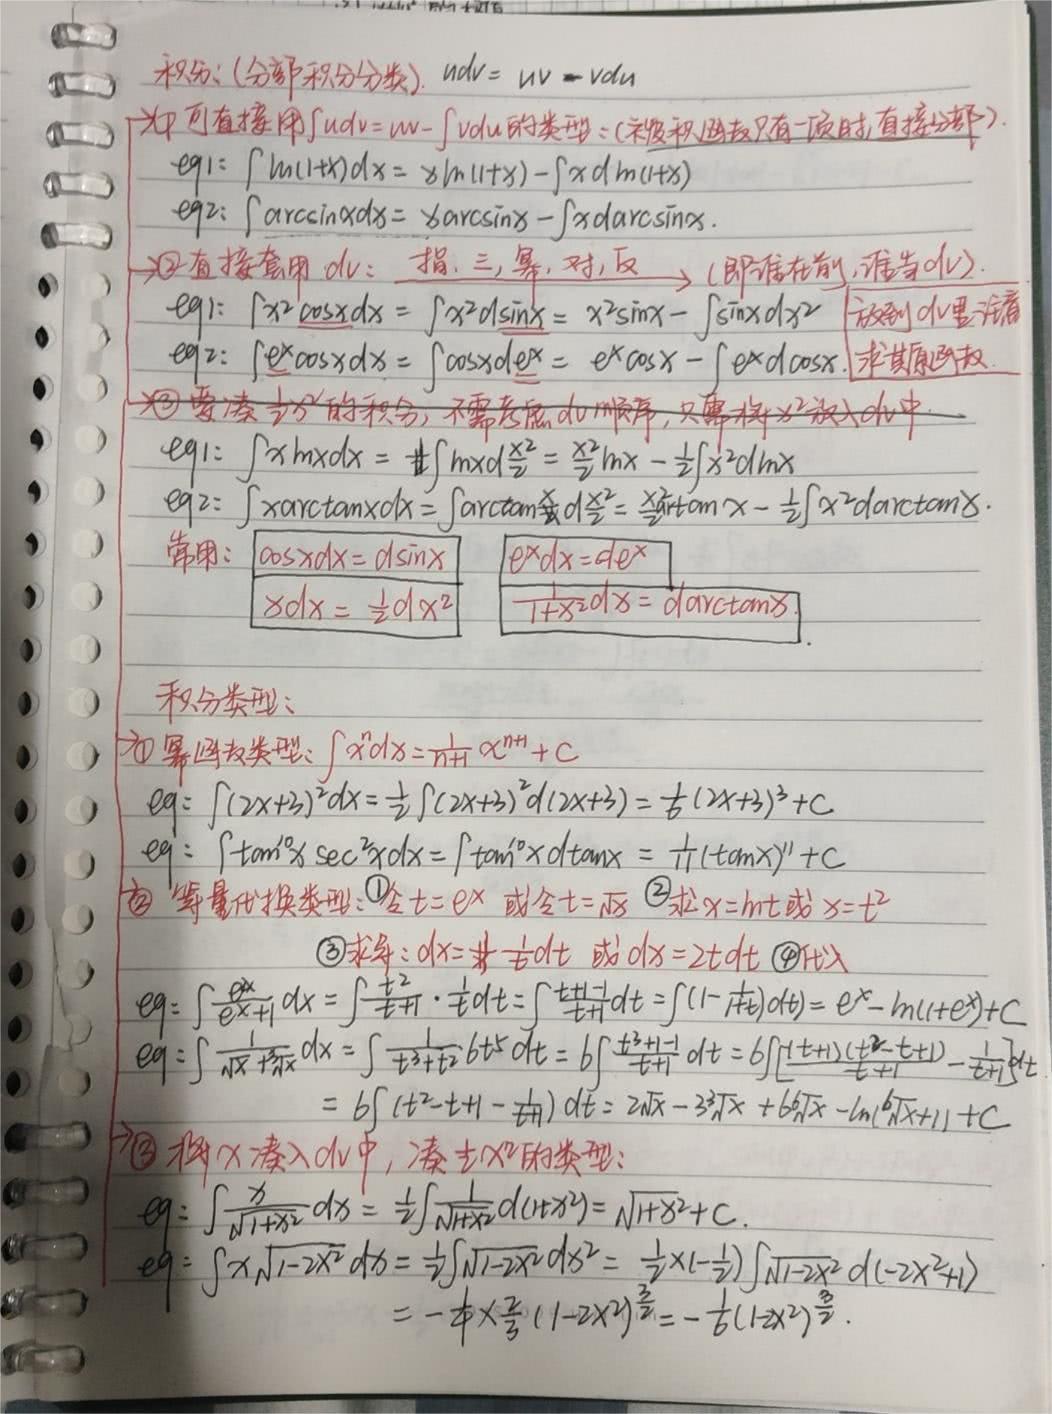 积分:(分部积分分类). udv = uv - vdu
① 可直接用∫udv=uv-∫vdu的类型:(被积函数只有一项时,直接分部).
eg1: ∫ln(1+x)dx = xln(1+x) - ∫xdln(1+x)
eg2: ∫arcsinxdx = xarcsinx - ∫xdarcsinx.
② 直接套用 dv: 指、三,幂,对,反 → (即谁在前,谁当dv).
eg1: ∫x²cosxdx = ∫x²dsinx = x²sinx - ∫sinxdx² 放到dv里谁着
eg2: ∫eˣcosxdx = ∫cosxdeˣ = eˣcosx - ∫eˣdcosx. 求其原函数.
③ 要凑½x²的积分,不需考虑dv顺序,只需将x²放入dv中.
eg1: ∫xlnxdx = ∫lnxd x²/2 = x²/2 lnx - ½∫x²dlnx
eg2: ∫xarctanxdx = ∫arctanx d x²/2 = x²/2 artanx - ½∫x²darctanx.
常用: cosxdx = dsinx eˣdx = deˣ
xdx = ½dx² 1/(1+x²) dx = darctanx.
积分类型:
① 幂函数类型: ∫xⁿdx = 1/(n+1) xⁿ⁺¹ + C
eg: ∫(2x+3)²dx = ½∫(2x+3)²d(2x+3) = 1/6 (2x+3)³ + C
eg: ∫tan¹⁰x sec²xdx = ∫tan¹⁰xdtanx = 1/11 (tanx)¹¹ + C
② 等量代换类型: ①令t = eˣ 或令t = √x ②求x = lnt或x = t²
③求导: dx = 1/t dt 或dx = 2tdt ④代入
eg: ∫eˣ/(eˣ+1) dx = ∫t²/(t+1) · 1/t dt = ∫(t+1-1)/(t+1) dt = ∫(1 - 1/(1+t))dt) = eˣ - ln(1+eˣ) + C
eg: ∫1/(√x + ³√x) dx = ∫1/(t³+t²) 6t⁵dt = 6∫(t³+1-1)/(t+1) dt = 6∫[(t+1)(t²-t+1)/(t+1) - 1/(t+1)]dt
= 6∫(t²-t+1 - 1/(t+1)) dt = 2√x - 3³√x + 6⁶√x - ln(⁶√x+1) + C
③ 将x凑入dv中,凑½x²的类型:
eg: ∫x/√(1+x²) dx = ½∫1/√(1+x²) d(1+x²) = √(1+x²) + C.
eg: ∫x√(1-2x²) dx = ½∫√(1-2x²) dx² = ½×(-½)∫√(1-2x²) d(-2x²+1)
= -¼ × ⅔ (1-2x²)^(3/2) = -1/6 (1-2x²)^(3/2).